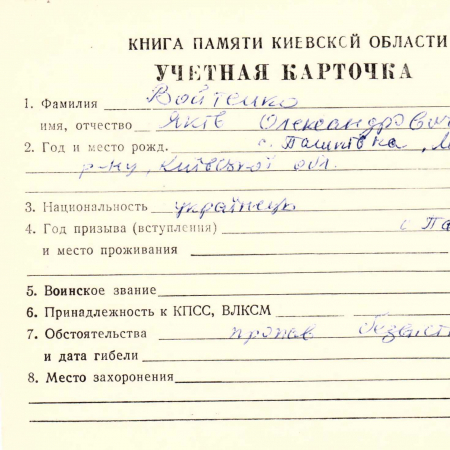 КНИГА ПАМЯТИ КИЕВСКОЙ ОБЛАСТИ
УЧЕТНАЯ КАРТОЧКА
1. Фамилия Войтенко
имя, отчество Яків Олександрович
2. Год и место рожд. с. Пашківка, М
р-ну, Київської обл.
3. Национальность українець
4. Год призыва (вступления) с Па
и место проживания
5. Воинское звание
6. Принадлежность к КПСС, ВЛКСМ
7. Обстоятельства пропав безвіст
и дата гибели
8. Место захоронения